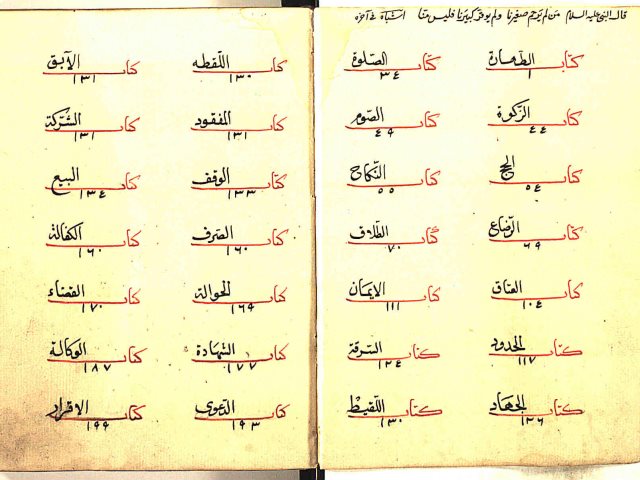 قال النبى عليه السلام من لم يرحم صغيرنا ولم يوقر كبيرنا فليس منا
كتاب الطهارة كتاب الصلوة
١ ٣٤
كتاب الزكوة كتاب الصوم
٤٤ ٤٩
كتاب الحج كتاب النكاح
٥٤ ٥٥
كتاب الرضاع كتاب الطلاق
٦٩ ٧٠
كتاب العتاق كتاب الايمان
١٠٤ ١١١
كتاب الحدود كتاب السرقة
١١٧ ١٢٤
كتاب الجهاد كتاب اللقيط
١٢٦ ١٣٠
كتاب اللقطه كتاب الآبق
١٣٠ ١٣١
كتاب المفقود كتاب الشركة
١٣١ ١٣١
كتاب الوقف كتاب البيع
١٣٣ ١٣٤
كتاب الصرف كتاب الكفالة
١٦٠ ١٦٠
كتاب الحوالة كتاب القضاء
١٦٩ ١٧٠
كتاب الشهادة كتاب الوكالة
١٧٧ ١٨٧
كتاب الدعوى كتاب الاقرار
١٩٣ ١٩٩